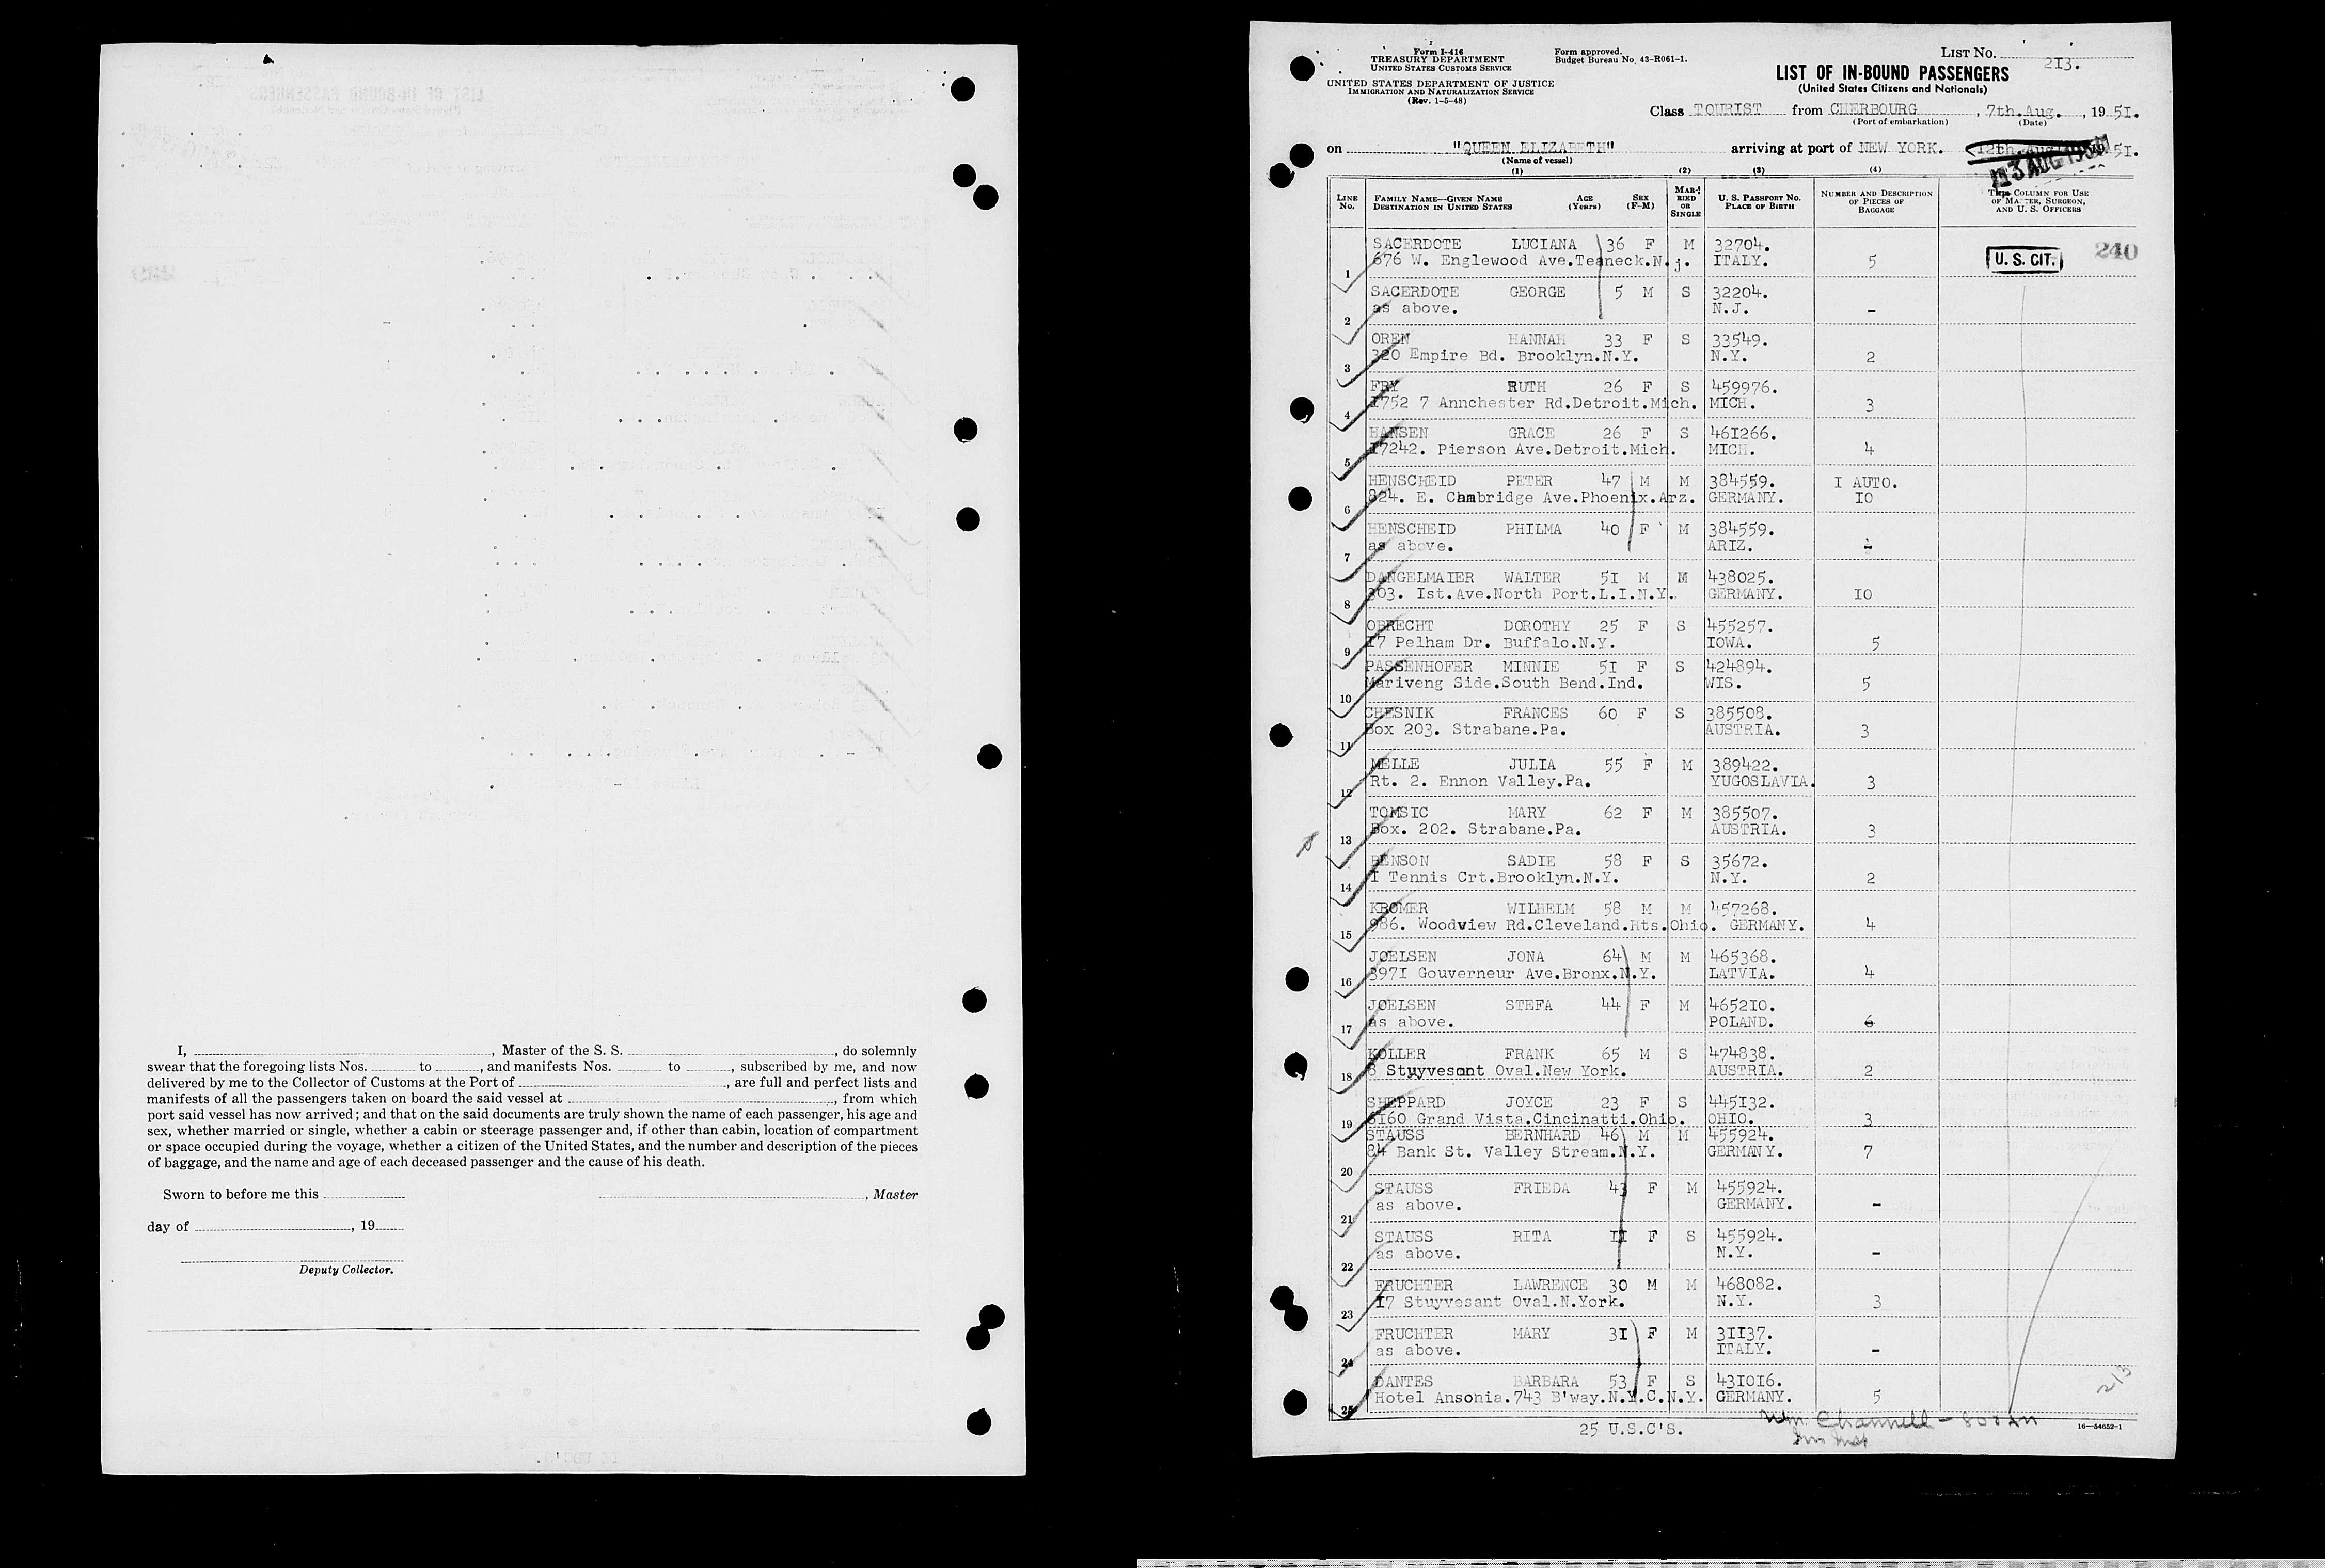 I, , Master of the S. S. , do solemnly
swear that the foregoing lists Nos. to , and manifests Nos. to , subscribed by me, and now
delivered by me to the Collector of Customs at the Port of , are full and perfect lists and
manifests of all the passengers taken on board the said vessel at , from which
port said vessel has now arrived; and that on the said documents are truly shown the name of each passenger, his age and
sex, whether married or single, whether a cabin or steerage passenger and, if other than cabin, location of compartment
or space occupied during the voyage, whether a citizen of the United States, and the number and description of the pieces
of baggage, and the name and age of each deceased passenger and the cause of his death.
Sworn to before me this , Master
day of , 19
Deputy Collector.
Form I-416
TREASURY DEPARTMENT
UNITED STATES CUSTOMS SERVICE
UNITED STATES DEPARTMENT OF JUSTICE
IMMIGRATION AND NATURALIZATION SERVICE
(Rev. 1-5-48)
Form approved.
Budget Bureau No. 43-R061-1.
LIST No. 213.
LIST OF IN-BOUND PASSENGERS
(United States Citizens and Nationals)
Class TOURIST from CHERBOURG , 7th.Aug. , 1951.
(Port of embarkation) (Date)
on "QUEEN ELIZABETH" arriving at port of NEW YORK. 12th.Aug 51.
(Name of vessel)
13 AUG 1951
(1) (2) (3) (4)
LINE No. FAMILY NAME—GIVEN NAME DESTINATION IN UNITED STATES AGE (Years) SEX (F-M) MARRIED OR SINGLE U. S. PASSPORT No. PLACE OF BIRTH NUMBER AND DESCRIPTION OF PIECES OF BAGGAGE THIS COLUMN FOR USE OF MASTER, SURGEON, AND U. S. OFFICERS
SACERDOTE LUCIANA 36 F M 32704.
1 676 W. Englewood Ave.Teaneck.N.j. ITALY. 5 U. S. CIT. 240
SACERDOTE GEORGE 5 M S 32204.
2 as above. N.J. -
OREN HANNAH 33 F S 33549.
3 320 Empire Bd. Brooklyn.N.Y. N.Y. 2
FRY RUTH 26 F S 459976.
4 1752 7 Annchester Rd.Detroit.Mich. MICH. 3
HANSEN GRACE 26 F S 461266.
5 17242. Pierson Ave.Detroit.Mich. MICH. 4
HENSCHEID PETER 47 M M 384559. I AUTO.
6 824. E. Cambridge Ave.Phoenix.Arz. GERMANY. IO
HENSCHEID PHILMA 40 F M 384559.
7 as above. ARIZ. -
DANGELMAIER WALTER 51 M M 438025.
8 303. Ist.Ave.North Port.L.I.N.Y. GERMANY. IO
OBRECHT DOROTHY 25 F S 455257.
9 17 Pelham Dr. Buffalo.N.Y. IOWA. 5
PASSENHOFER MINNIE 51 F S 424894.
10 Mariveng Side.South Bend.Ind. WIS. 5
CHESNIK FRANCES 60 F S 385508.
11 Box 203. Strabane.Pa. AUSTRIA. 3
MELLE JULIA 55 F M 389422.
12 Rt. 2. Ennon Valley.Pa. YUGOSLAVIA. 3
TOMSIC MARY 62 F M 385507.
13 Box. 202. Strabane.Pa. AUSTRIA. 3
BENSON SADIE 58 F S 35672.
14 I Tennis Crt.Brooklyn.N.Y. N.Y. 2
KROMER WILHELM 58 M M 457268.
15 986. Woodview Rd.Cleveland.Hts.Ohio. GERMANY. 4
JOELSEN JONA 64 M M 465368.
16 3971 Gouverneur Ave.Bronx.N.Y. LATVIA. 4
JOELSEN STEFA 44 F M 465210.
17 as above. POLAND. 6
KOLLER FRANK 65 M S 474838.
18 8 Stuyvesant Oval.New York. AUSTRIA. 2
SHEPPARD JOYCE 23 F S 445132.
19 6160 Grand Vista.Cincinatti.Ohio. OHIO. 3
STAUSS BERNHARD 46 M M 455924.
20 84 Bank St. Valley Stream.N.Y. GERMANY. 7
STAUSS FRIEDA 43 F M 455924.
21 as above. GERMANY. -
STAUSS RITA II F S 455924.
22 as above. N.Y. -
FRUCHTER LAWRENCE 30 M M 468082.
23 17 Stuyvesant Oval.N.York. N.Y. 3
FRUCHTER MARY 31 F M 31137.
24 as above. ITALY. -
DANTES BARBARA 53 F S 431016.
25 Hotel Ansonia.743 B'way.N.Y.C.N.Y. GERMANY. 5
213
25 U.S.C'S.
Wm. Channell
16—54652-1